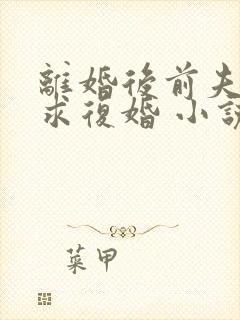 離婚後前夫
求復婚 小說
菜甲